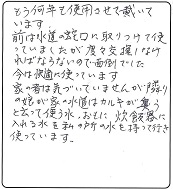 もう何年も使用させて戴いて
います。
前は水道の蛇口に取りつけて使
っていましたが度々交換しなけ
ればならないので面倒でした
今は快適に使っています
家の者は気づいていませんが隣り
の娘が家の水道はカルキが臭う
と云って使う水、おもに炊飯器に
入れる水を私の所の水を持って行き
使っています。